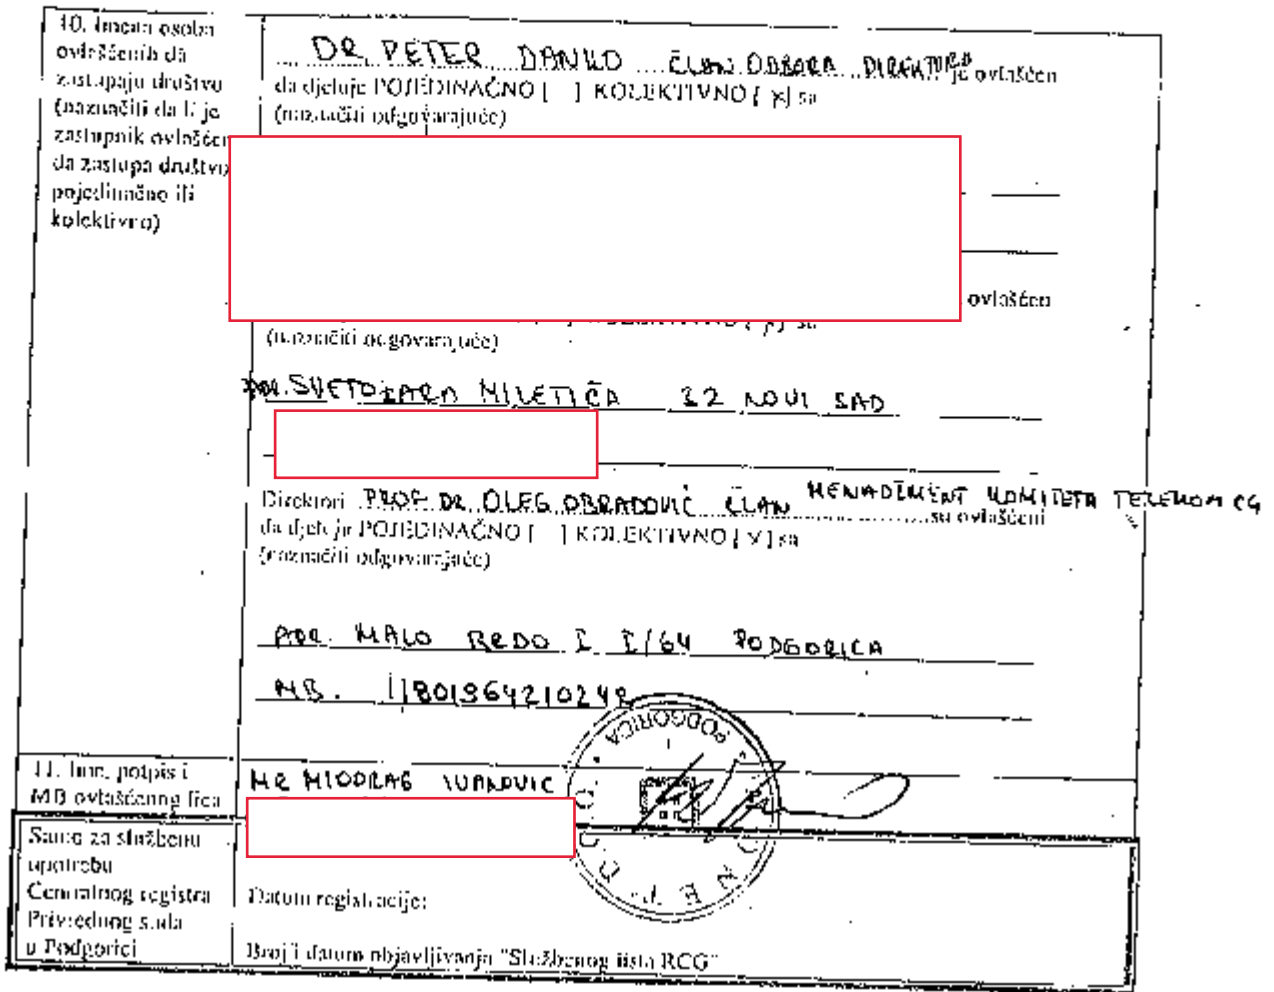 10. Imena osoba
ovlašćenih da
zastupaju društvo
(naznačiti da li je
zastupnik ovlašćen
da zastupa društvo
pojedinačno ili
kolektivno)
DR PETER DANKO ČLAN ODBORA DIREKTORA je ovlašćen
da djeluje POJEDINAČNO [ ] KOLEKTIVNO [ x] sa
(naznačiti odgovarajuće)
ovlašćen
(naznačiti odgovarajuće)
ADR. SVETOZARA MILETIĆA 32 NOVI SAD
Direktori PROF DR OLEG OBRADOVIĆ ČLAN MENADŽMENT KOMITETA TELEKOM CG su ovlašćeni
da djeluje POJEDINAČNO [ ] KOLEKTIVNO [ V ] sa
(naznačiti odgovarajuće)
ADR. MALO BRDO I I/64 PODGORICA
MB. 1801964210248
11. Ime, potpis i
MB ovlašćenog lica
MR MIODRAG IVANOVIC
PODGORICA
Samo za službenu
upotrebu
Centralnog registra
Privrednog suda
u Podgorici
Datum registracije:
Broj i datum objavljivanja "Službenog lista RCG"